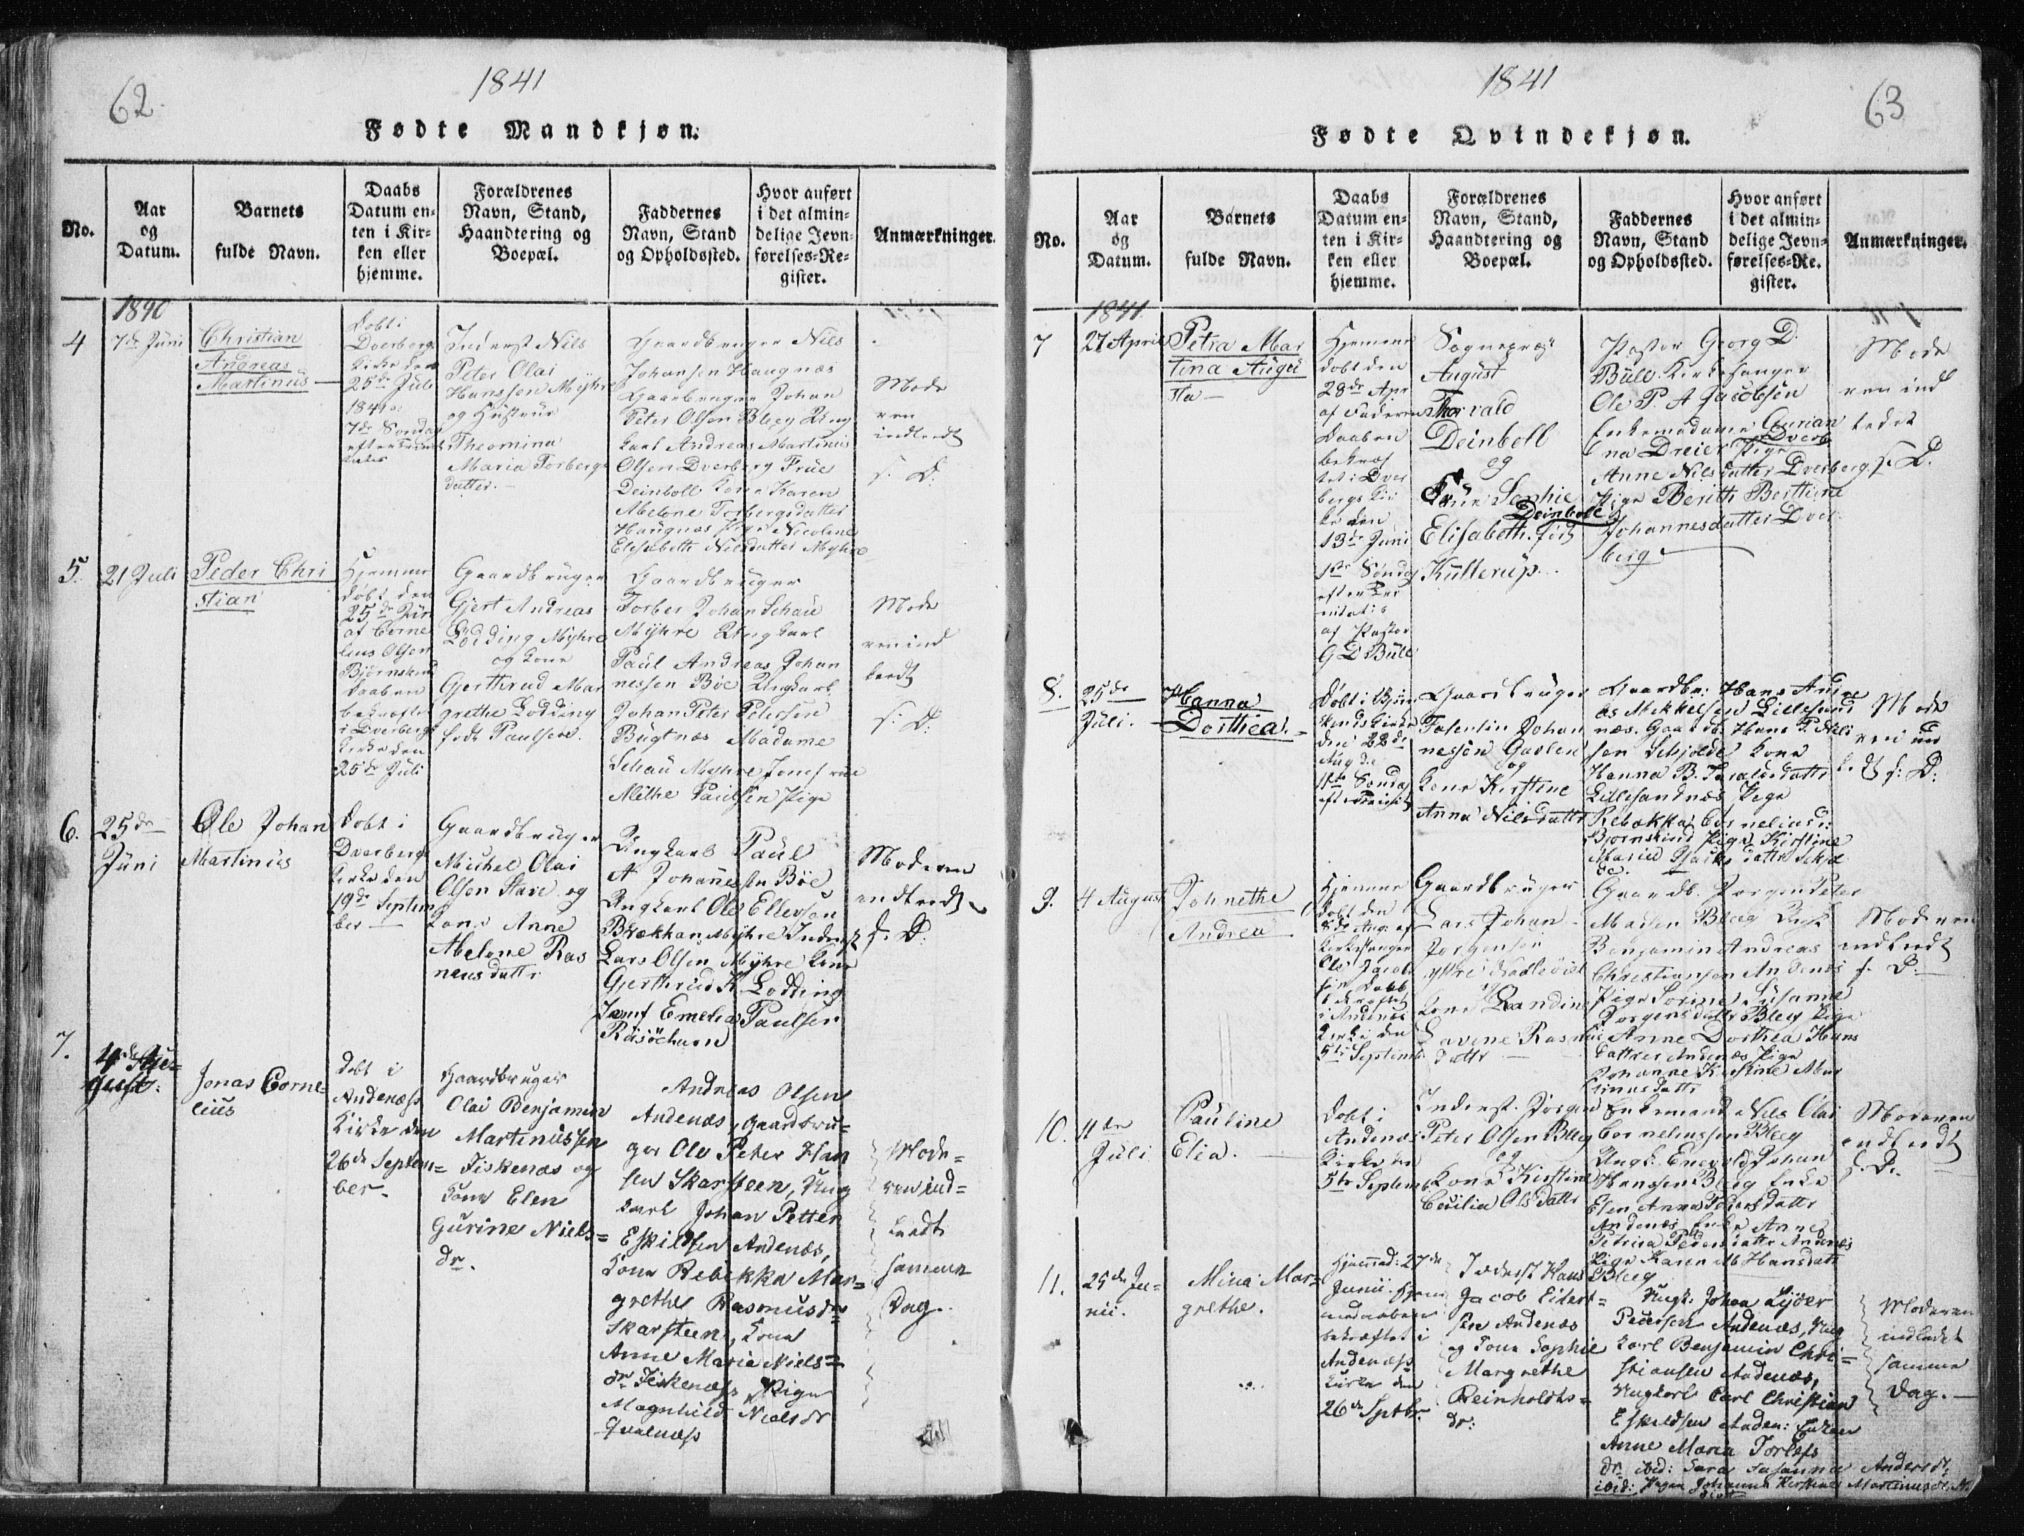 62
1841
Fødte Mandkjøn.
No.
Aar
og
Datum.
Barnets
fulde Navn.
Daabs
Datum en-
ten i Kir-
ken eller
hjemme.
Forældrenes
Navn, Stand,
Haandtering og
Boepæl.
Faddernes
Navn, Stand
og Opholdssted.
Hvor anført
i det almin-
delige Jevn-
førelses-Re-
gister.
Anmærkninger.
1840
4
7de Juni
Christian
Andreas
Martinus
Døbt i
Dverbergs
Kirke den
25de Juli
1841
7de Søndag
Inderst Nils
Peter Olai
Hanssen Myhre
og Hustrue
Theomina
Maria Torbergs
datter.
Gaardbruger Nils
Johansen Haugnæs
Gaarbruger Johan
Peter Olsen Bleeg Ung
karl Andreas Martinus
Olsen Dverberg Frue
Deinboll Kone Karen
Abelone Torbergsdatter
Haugnæs Pige Nicoline
Elisabeth Nilsdatter Myhre
Mode
ren
indledt
s: D:
5.
21 Juli
Peder Chri
stian
Hjemme
døbt den
25de Juli
af Corne
lius Olsen
Bjørnskind
Daaben
bekræftet
i Dverbergs
Kirke den
25de Juli
Gaardbruger
Gjert Andreas
Lodding Myhre
og Kone
Gjerthrud Mar
grethe Lodding
født Paulsen.
Gaardbruger
Torber Johan Schau
Myhre Ungkarl
Paul Andreas Johan
nessen Böe Ungkarl
Johan Peter Petersen
Bugtnæs Madame
Schau Myhre Jomfrue
Mithe Paulsen Pige
Mode
ren ind
ledt
s: D:
6.
25de
Juni
Ole Johan
Martinus
Døbt i
Dverbergs
Kirke den
19de Septem
ber
Gaardbruger
Michel Olai
Olsen Stave og
Kone Anne
Abelone Ras
musdattr
Ungkarl Paul
A Johannessen Böe
Ungkarl Ole Ellevsen
Brækkan Myhre Inderst
Lars Olsen Myhre Kone
Gjerthrud K Lodding
Jomf Emelia Paulsen
Risöehavn
Moderen
indledt
s. D:
7.
4de Au-
gust.
Jonas Corne-
lius
døbt i
Andenæss
Kirke den
26de Septem-
ber.
Gaardbruger
Olai Benjamin
Martinussen
Fiskenæs og
Kone Elen
Gurine Niels-
dr.
Andreas Olsen
Andenæs, Gaardbru-
ger Ole Peter Han
sen Skarsteen, Ung
karl Johan Petter
Eskildsen Andenæs,
Kone Rebekka Mar-
grethe Rasmusdr
Skarsteen, Kone
Anne Maria Niels-
dr Fiskenæss Pige
Magnhild Nielsdr
Qvalnæss
Mode-
ren ind-
ledt
samme
Dag.
1841
63
Fødte Qvindekjøn.
No.
Aar
og
Datum.
Barnets
fulde Navn.
Daabs
Datum en-
ten i Kir-
ken eller
hjemme.
Forældrenes
Navn, Stand,
Haandtering og
Boepæl.
Faddernes
Navn, Stand
og Opholdssted.
Hvor anført
i det almin-
delige Jevn-
førelses-Re-
gister.
Anmærkninger.
1841
7
27 April
Petra Mar
tina Augu
sta
Hjemme
døbt den
28de Apr
af Faderen
Daaben
bekræf
tet i Dver
bergs Kir
ke den
13de Juni
1ste Søndag
efter Tri
nitatis
af Pastor
G D Bull
Sognepræst
August
Thorvald
Deinboll
og
Frue Sophie
Deinboll
Elisabeth født
Kullerup.
Pastor Georg D.
Bull Kirkesanger
Ole P. A Jacobsen
Enkemadame Caurian
na Dreier Dverb
Pige
Anne Nilsdatter Dverberg
Pige Berith Berthine
Johannesdatter Dver
berg
Mode
ren ind
ledet
s. D.
8.
25de
Juli.
Hanna
Dorthea.
Døbt i Bjørn
skinds Kirke
den 22de
Aug
11te Søndag
Gaardbruger
Tosentin Johan
nessen Gavlen
og
Kone Kirstine
Anna Nilsdattr
Gaardbr: Hans Andre
as Mikkelsen Lillesand
næs. Gaardb. Hans P. Nil
sen Schjolde Kone
Hanna B. Taraldsdattr
Lillesandnæs Pige
Rebækka Corneliusd:
Bjornskind Pige Kirstine
Maria Isaksdattr
Mode
ren ind
ledt s: D:
9.
4 August
Johnethe
Andrea
Hjemme
døbt den
Aug. af
Kirkesanger
Ole Jacob
sen Daab
bekræftet
i Andenæs
Kirke den
5te Septemb
Gaardbruger
Lars Johan
Jørgensen
og
Kone Randine
Lavine Rasmus
dattr
Gaardb. Jørgen Peter
Madsen Bleeg
Benjamin Andreas
Christiansen Andenæs
Pige Sorine Susanne
Jørgensdattr Bleeg Pige
Anne Dorthea Hans
dattr Andenæs Pige
Johanne Kirstine Mar
tinusdattr
Moderen
indledt
s. D:
10.
11te
Juli
Pauline
Elia.
Døbt i
Andenæs
Kirke den
5te Septem
Inderst. Jørgen
Peter Olsen Bleeg
og
Kone Kirstine
Cecilia Olsdattr
Enkemand Nils Olai
Corneliussen Bleeg
Ungk. Enevold Johan
Hansen Bleeg Enke
Elen Anna Pedersdattr
Andenæs Enke Anne
Petrina Pedersdattr Andenæs
Pige Karen M Hansdattr
Bleeg
Moderen
indledt
s. D.
11.
25de Ju-
nii.
Mina Mar-
grethe.
Hjemmed: 27de
Junii. Hjem
medaaben
bekræftet i
Andenæss
Kirke den
26de Septbr.
Inderst Hans
Jacob Eilert-
sen Andenæs
og Kone Sophie
Margrethe
Reinholdts-
dr:
Ungk: Johan Lyder
Pedersen Andenæs, Ung
karl Benjamin Chri-
stiansen Andenæs,
Ungkarl Carl Christian
Eskildsen Anden: Enken
Anne Maria Torlefs
dr ibid: Sara Susanna Andersdr.
ibid: Pigen Johanna Kirstine Martinusdr.
Moderen
indledet
samme
Dag.